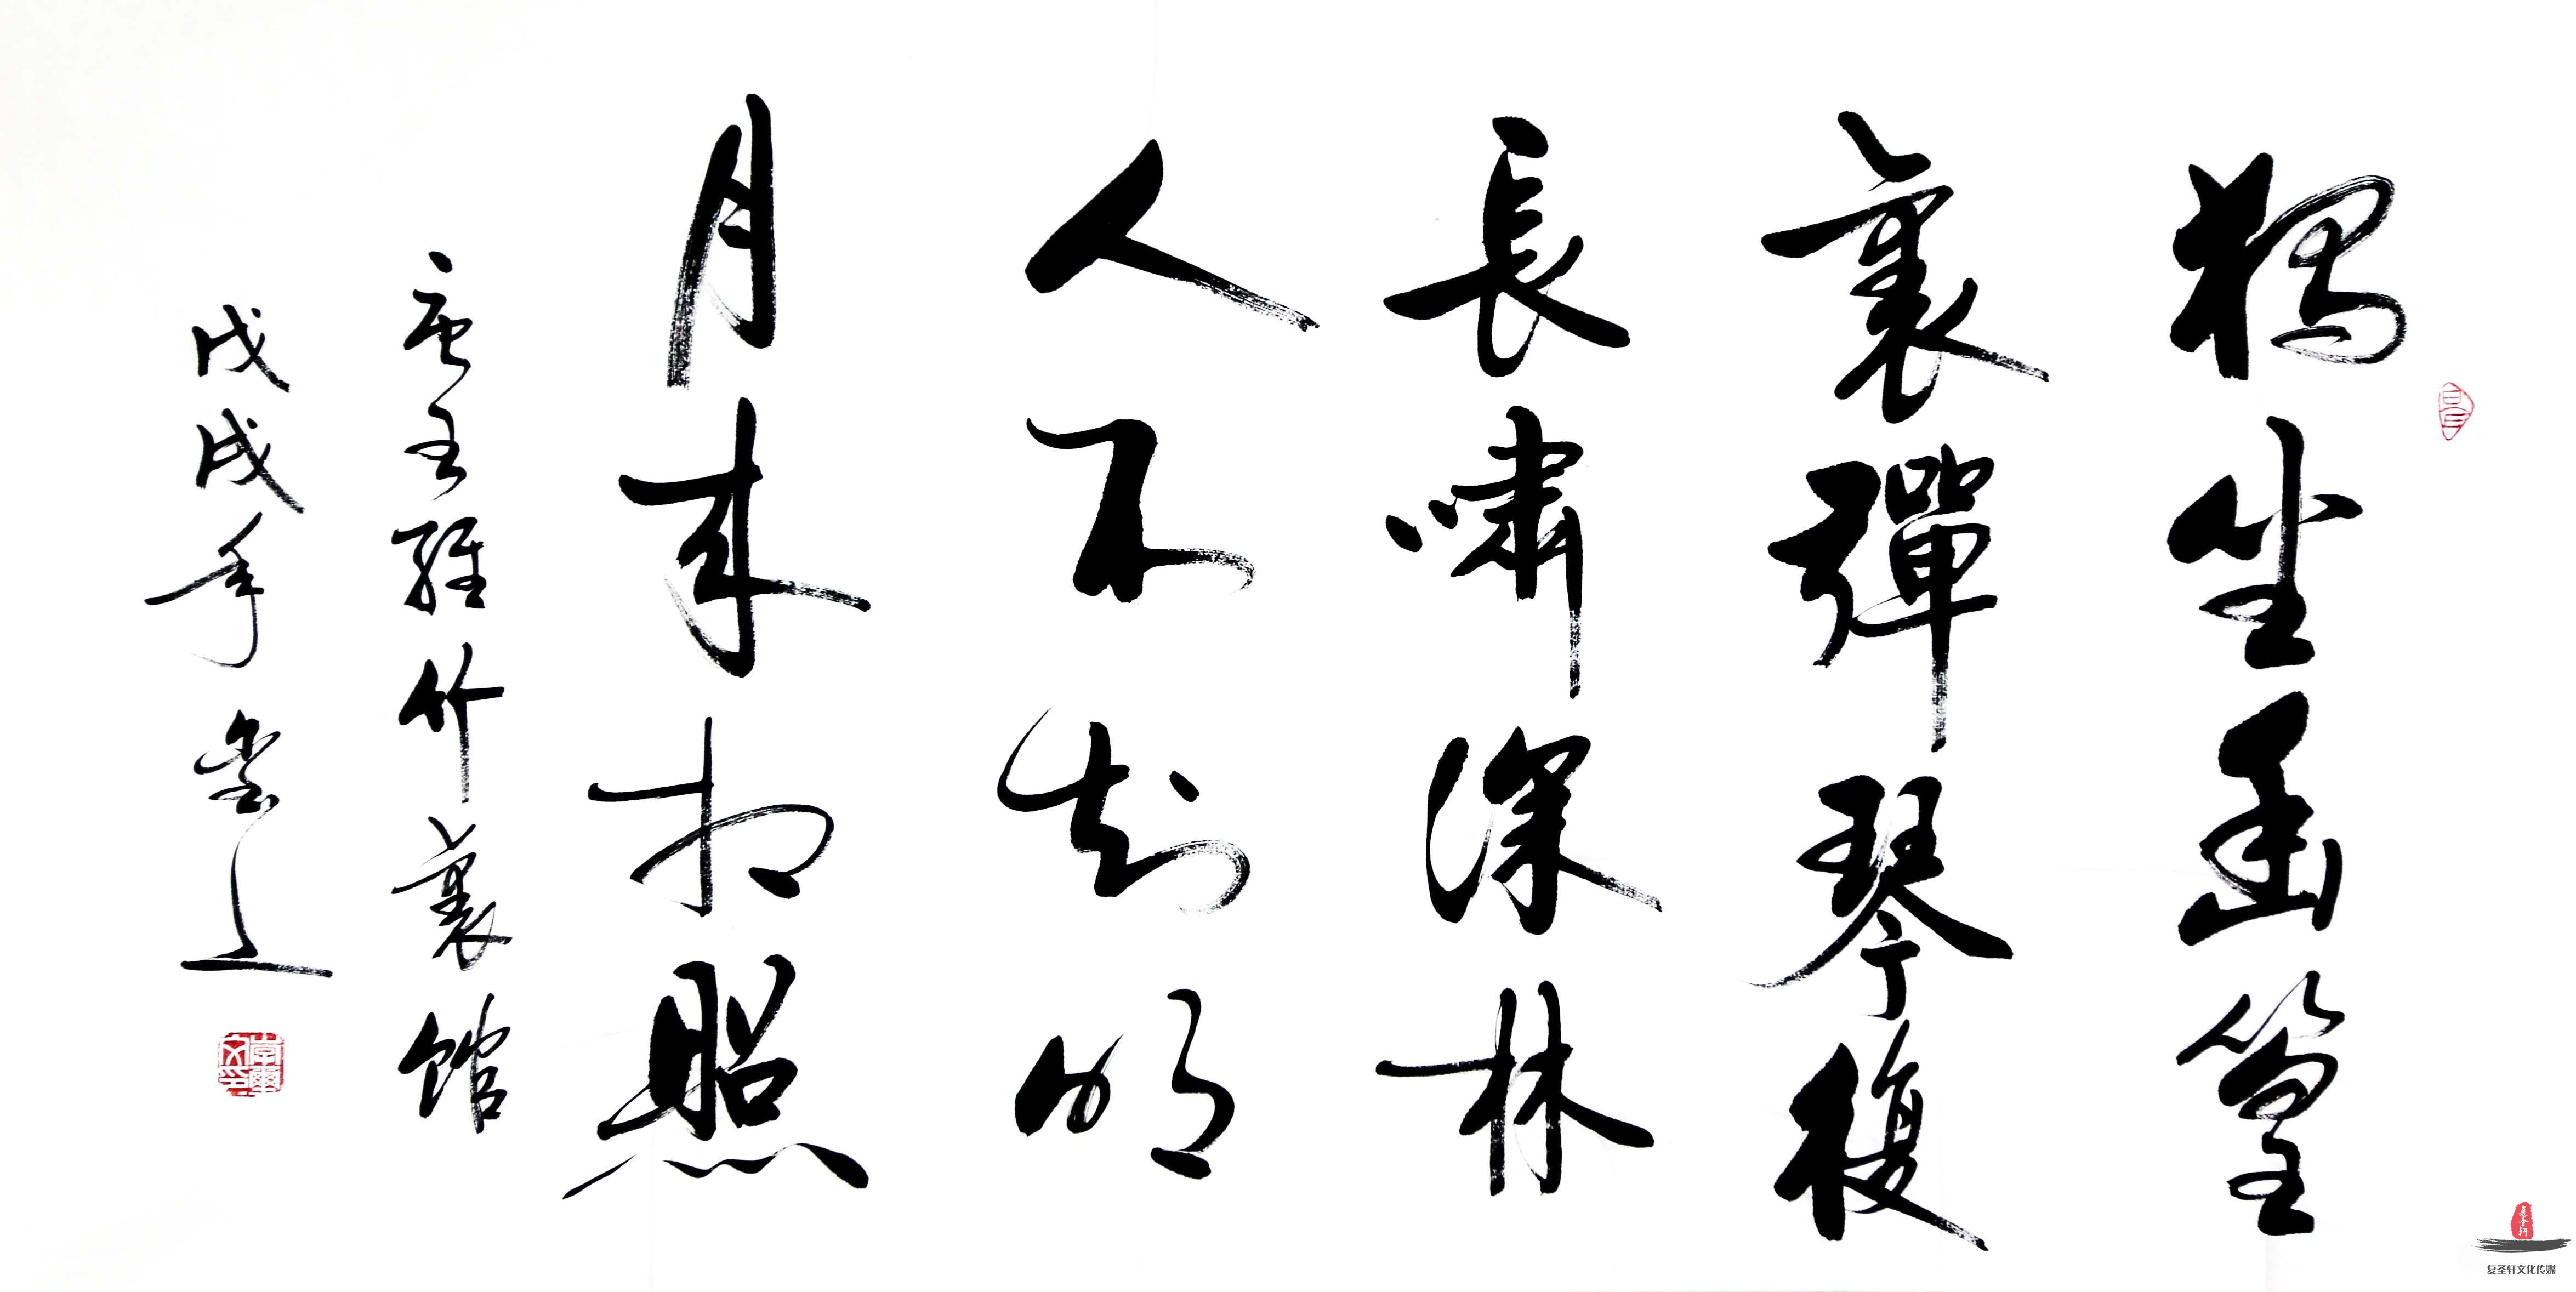 獨坐幽篁
裏彈琴復
長嘯深林
人不知明
月來相照
唐王維竹裏館
戊戌年
复圣轩
复圣轩文化传媒